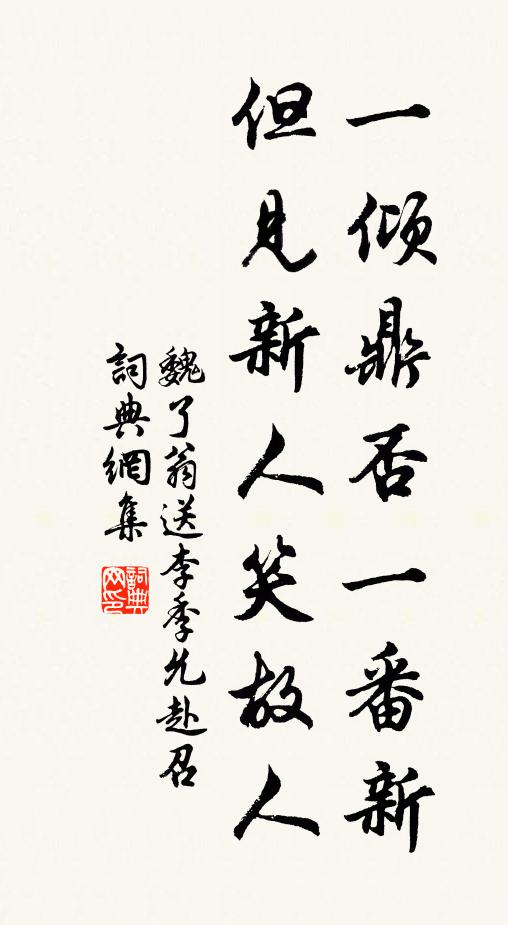 一傾鼎否一番新
但見新人笑故人
魏了翁送李季允赴召
詞典網集
詞典網印